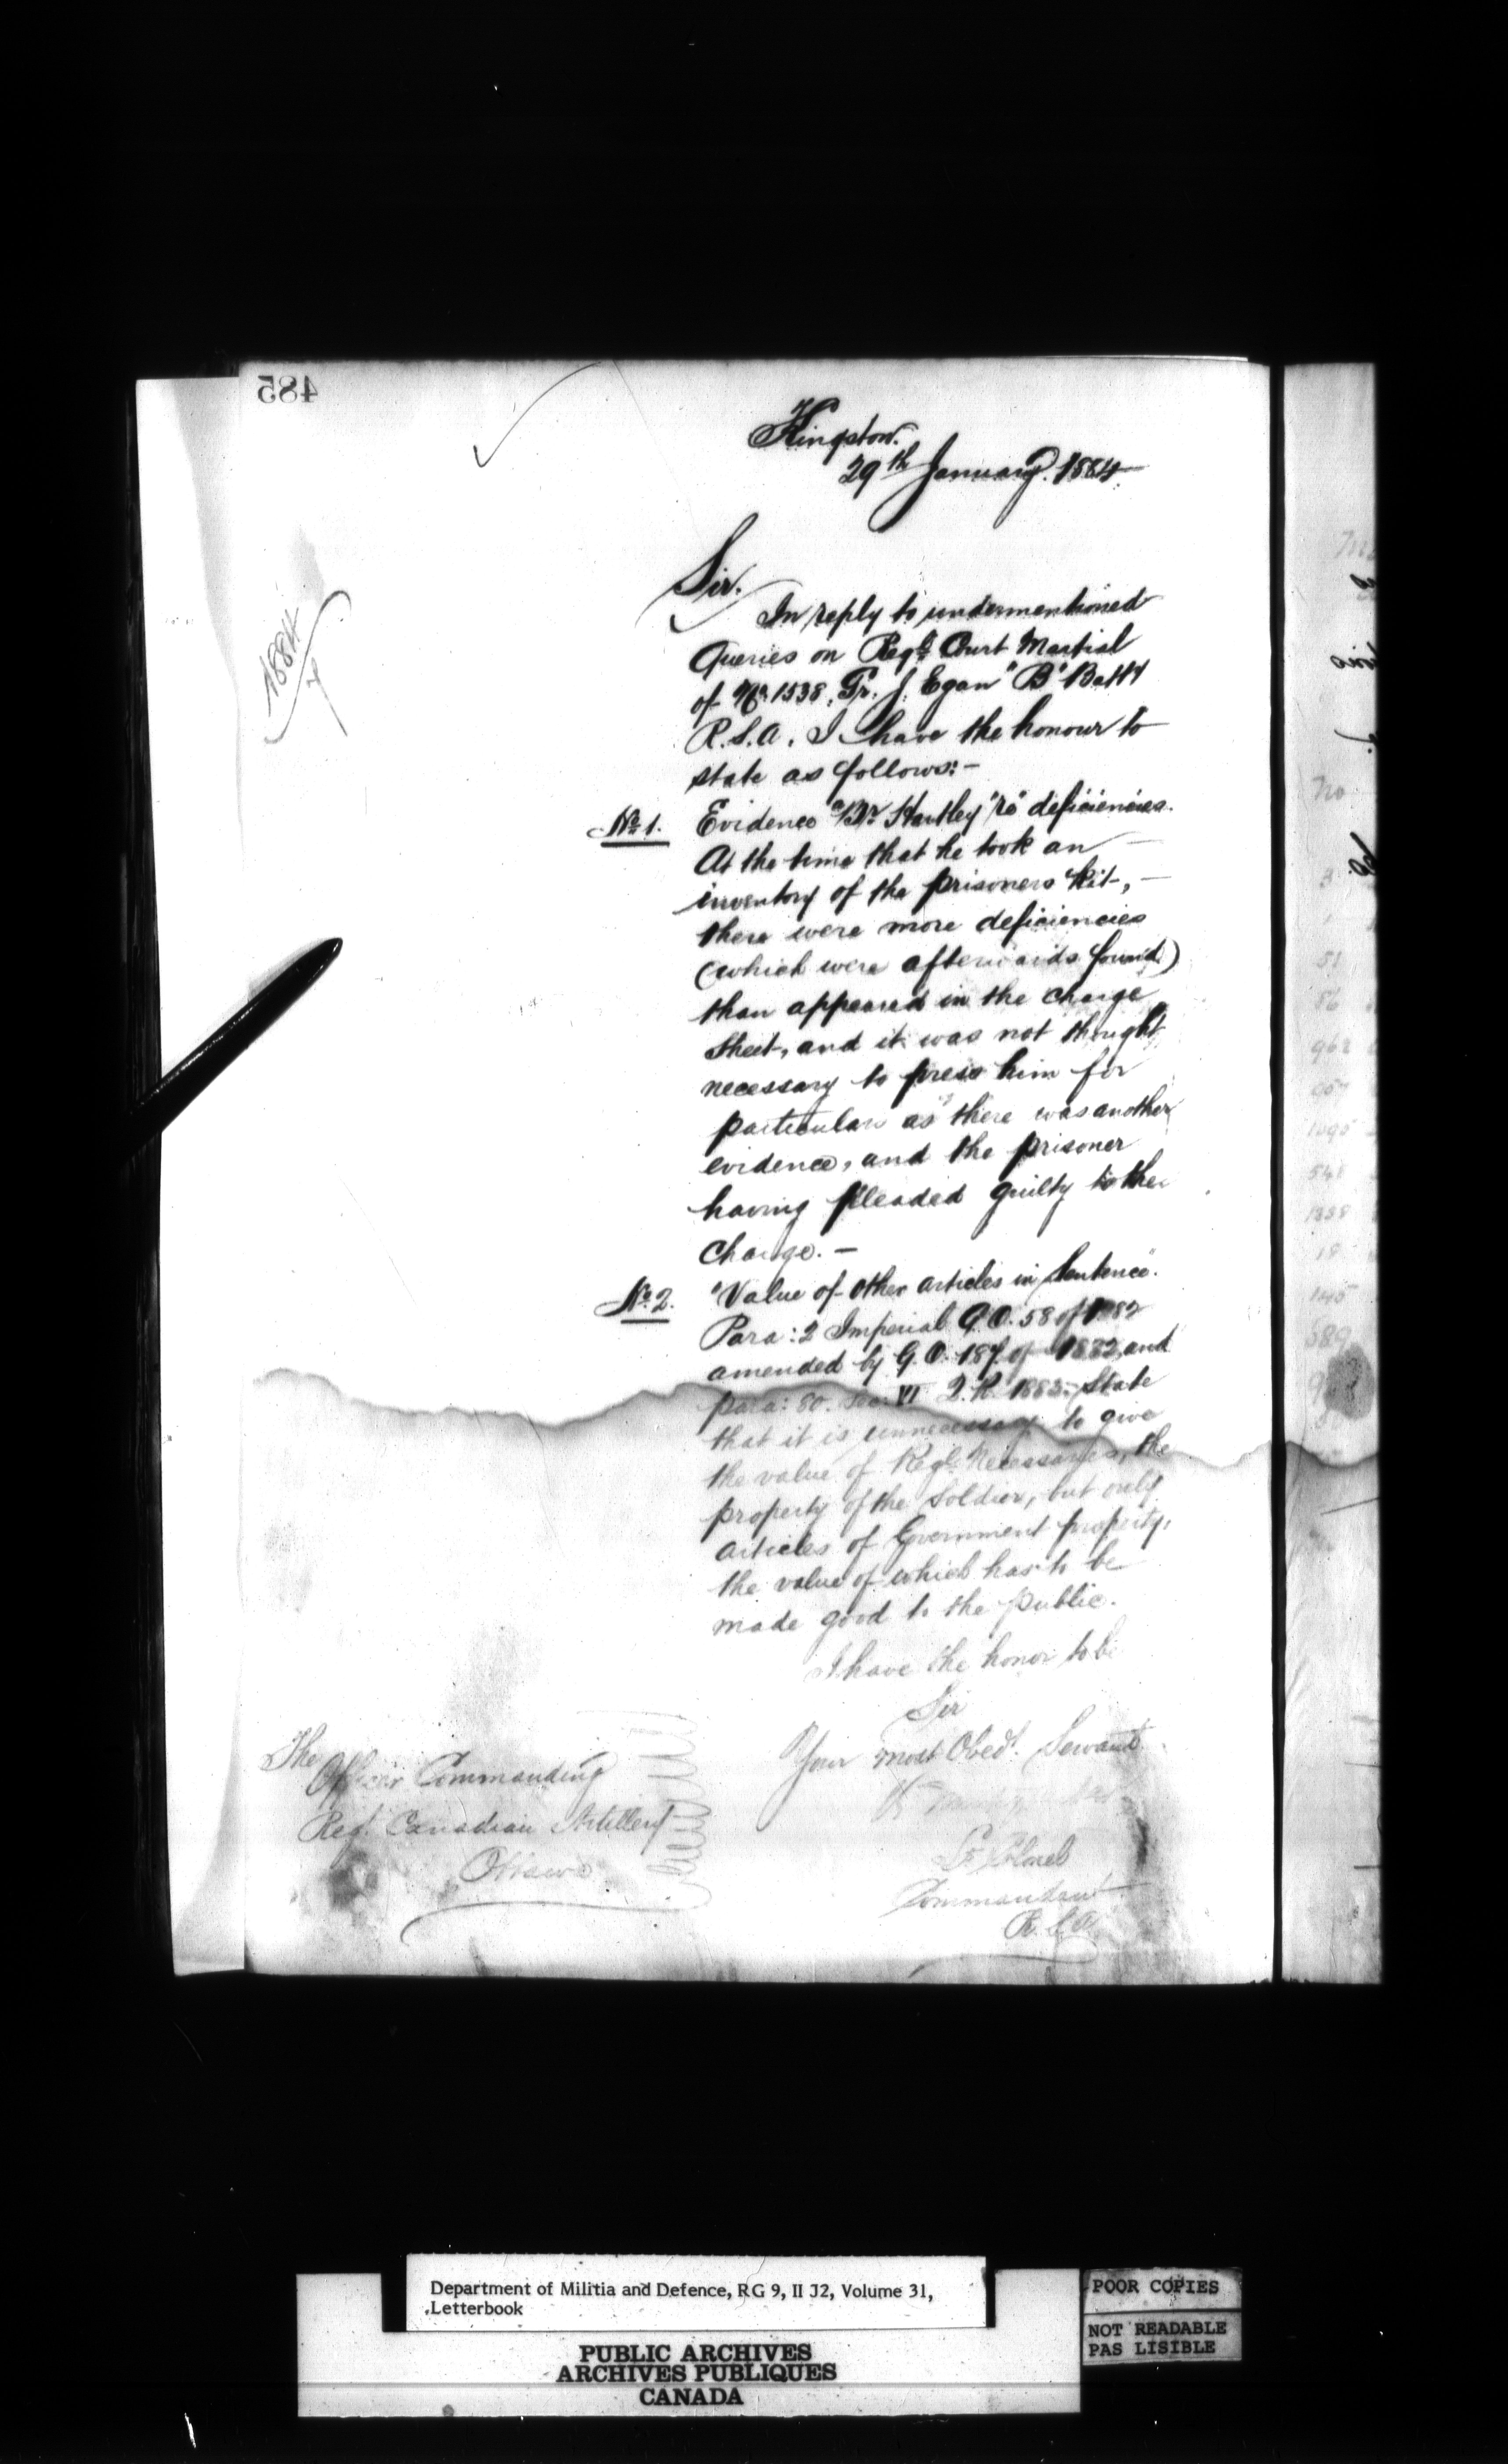 485
Kingston.
29th January. 1884
1884
Sir.
In reply to undermentioned
Queries on Regl. Court Martial
of No. 1538, Gr. J. Egan "B" Batty
R.S.A. I have the honour to
state as follows:-
No. 1. Evidence "Br. Hartley" "re" deficiencies.
At the time that he took an
inventory of the prisoners Kit,
there were more deficiencies
(which were afterwards found)
than appeared in the charge
sheet, and it was not thought
necessary to press him for
particulars as there was another
evidence, and the prisoner
having pleaded guilty to the
charge. -
No. 2. "Value of other articles in Sentence".
Para: 2 Imperial G.O. 58 of 1882
amended by G.O. 187 of 1882, and
para: 80. Sec: VI Q.R. 1883. State
that it is unnecessary to give
the value of Regl. Necessaries, the
property of the Soldier, but only
articles of Government property,
the value of which has to be
made good to the public.
I have the honor to be
Sir
Your most Obedt. Servant
Lt. Colonel
Commandant
R.S.A.
The
Officer Commanding
Regt. Canadian Artillery
Ottawa
Department of Militia and Defence, RG 9, II J2, Volume 31,
Letterbook
PUBLIC ARCHIVES
ARCHIVES PUBLIQUES
CANADA
POOR COPIES
NOT READABLE
PAS LISIBLE